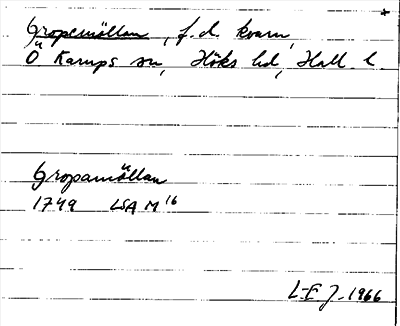 Gropemöllan, f.d. kvarn
Ö Karups sn, Höks hd, Hall. l.
Gropamöllan
1749 LSA M 16
L-E J. 1966